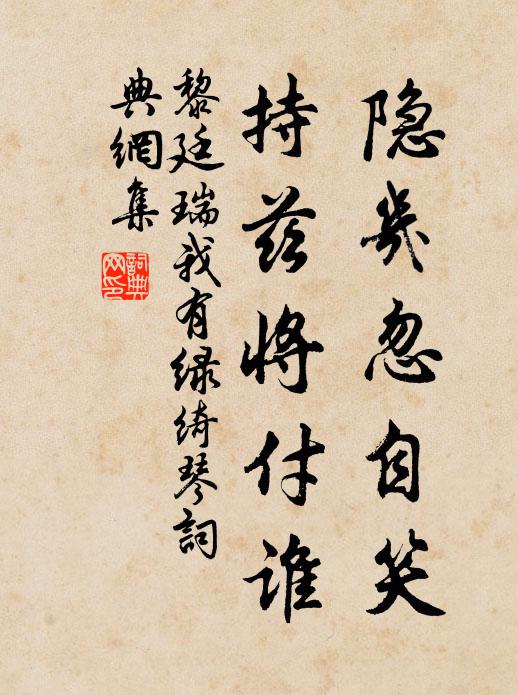 隐几忽自笑
持兹将付谁
黎廷瑞我有绿绮琴詞
典網集
詞典
网印